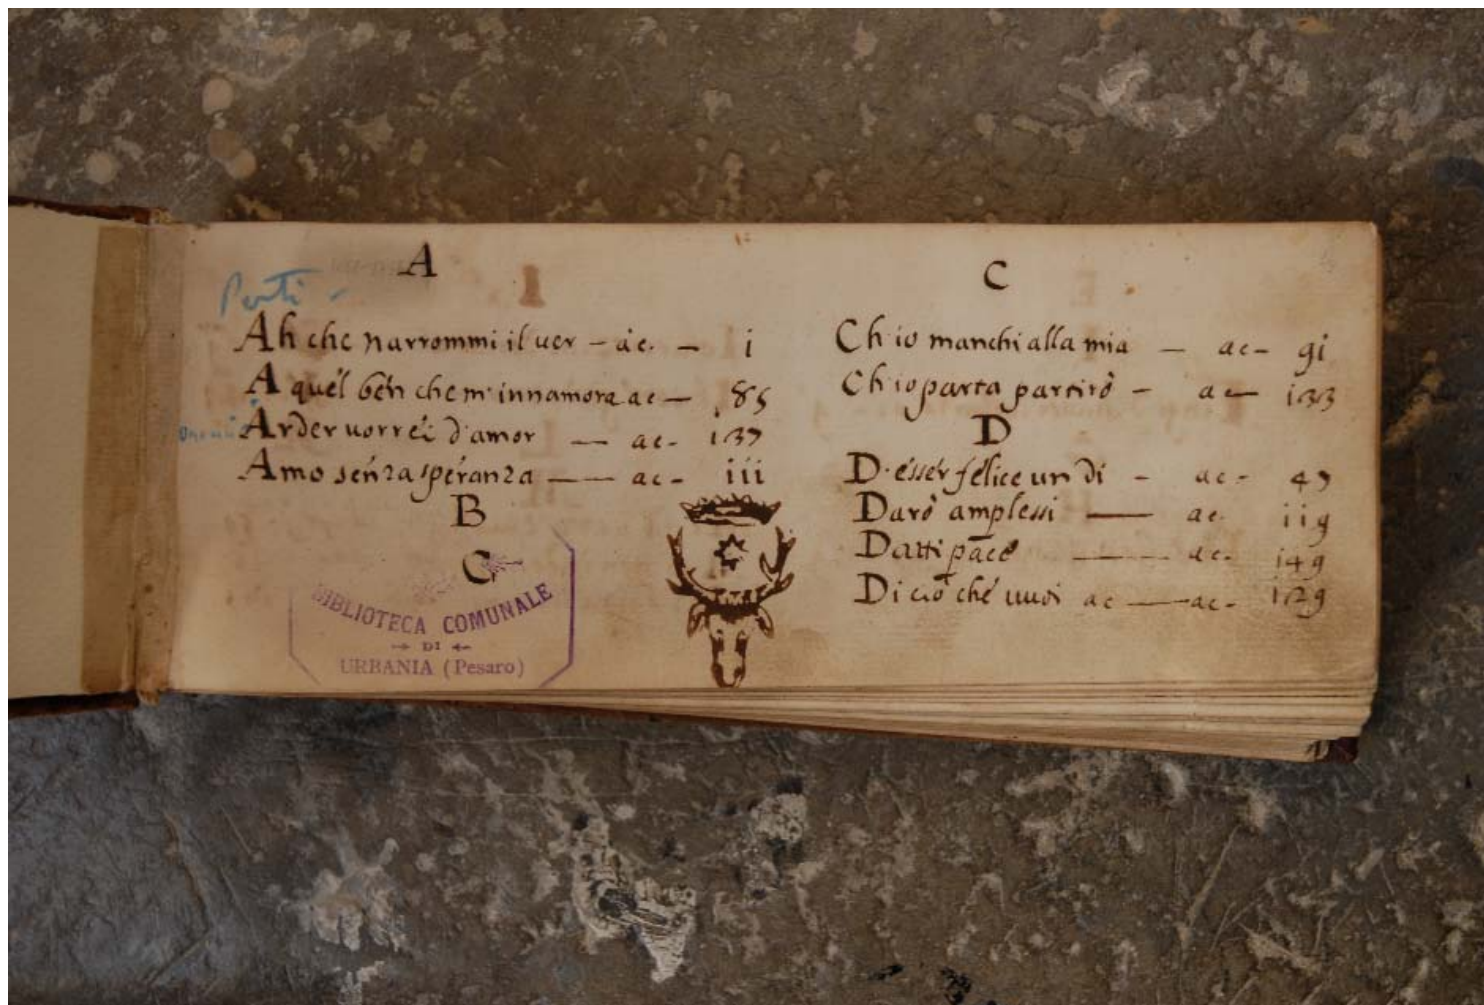 A
Ah che narrommi il uer - ac. - i
A quel ben che m'innamora ac - 85
Arder uorrei d'amor - ac - 137
Amo senza speranza - ac - iii
B
C
BIBLIOTECA COMUNALE
DI
URBANIA (Pesaro)
C
Ch'io manchi alla mia - ac - 91
Ch'io parta partirò - ac - 133
D
D'esser felice un di - ac - 47
Darò amplessi - ac. 119
Datti pace - ac. 149
Di ciò che uuoi ac - ac - 129